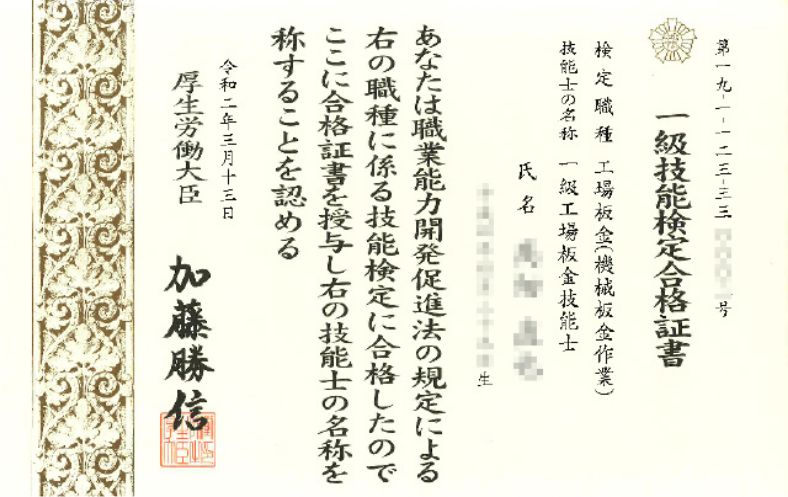 第一九-一-一二三-三三 号
一級技能検定合格証書
検定職種 工場板金(機械板金作業)
技能士の名称 一級工場板金技能士
氏名
生
あなたは職業能力開発促進法の規定による
右の職種に係る技能検定に合格したので
ここに合格証書を授与し右の技能士の名称を
称することを認める
令和二年三月十三日
厚生労働大臣 加藤勝信